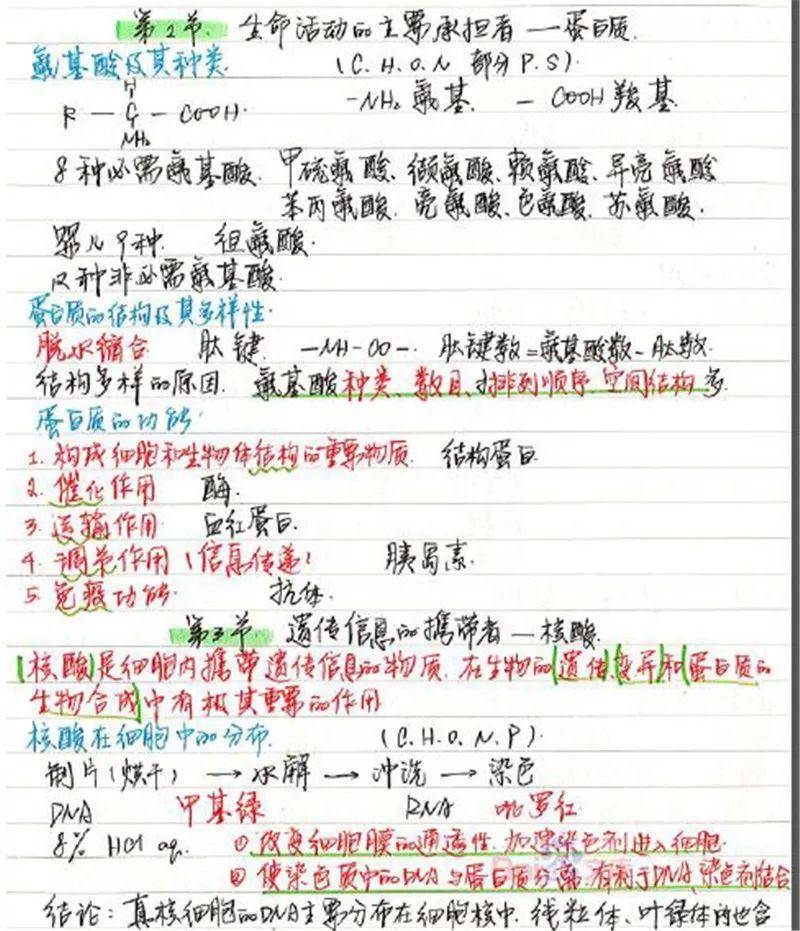 第2节. 生命活动的主要承担者 — 蛋白质.
氨基酸及其种类. (C.H.O.N 部分P.S).
H
R — C — COOH. -NH₂ 氨基. - COOH 羧基
NH₂
8种必需氨基酸. 甲硫氨酸、缬氨酸、赖氨酸、异亮氨酸
苯丙氨酸. 亮氨酸、色氨酸、苏氨酸.
婴儿9种. 组氨酸.
12种非必需氨基酸.
蛋白质的结构及其多样性.
脱水缩合 肽键. -NH-CO-. 肽键数=氨基酸数-肽数.
结构多样的原因. 氨基酸种类、数目、排列顺序 空间结构 多
蛋白质的功能.
1. 构成细胞和生物体结构的重要物质. 结构蛋白
2. 催化作用 酶.
3. 运输作用. 血红蛋白.
4. 调节作用(信息传递) 胰岛素.
5. 免疫功能. 抗体.
第3节. 遗传信息的携带者 — 核酸.
(核酸)是细胞内携带遗传信息的物质. 在生物的(遗传)、(变异)和(蛋白质的
生物合成)中有极其重要的作用
核酸在细胞中的分布. (C.H.O.N.P).
制片(烘干) → 水解 → 冲洗 → 染色
DNA 甲基绿 RNA 吡罗红
8% HCl aq. ① 改变细胞膜的通透性. 加速染色剂进入细胞.
② 使染色质中的DNA与蛋白质分离. 有利于DNA、染色剂结合
结论: 真核细胞的DNA主要分布在细胞核中. 线粒体、叶绿体内也含